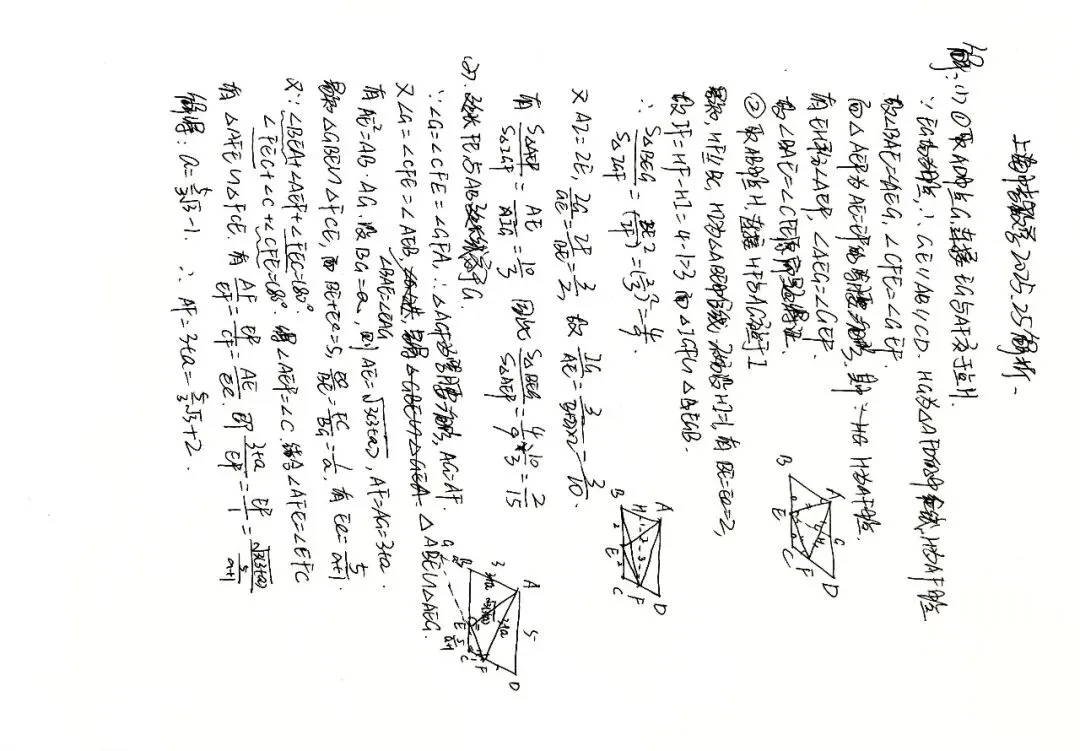 上海中考数学2025.25解析
解:(1)①取AD中点G,连接EG与AF交于点H.
∵EG为中点,∴GE∥AB∥CD. HG为△AFD的中位线,H为AF中点
故∠BAE=∠AEG, ∠CFE=∠GEF.
而△AEF为AE=EF的等腰三角形,
有EH平分∠AEF, ∠AEG=∠GEF.
故∠BAE=∠CFE
②取AB中点H,连接HF与AG交于I
易知, HF∥BC, HI为△ABE中位线, HI=1, 有BE=EC=2,
故IF=HF-HI=4-1=3 而△IGF∽△EGB.
∴ S△BEG/S△IGF=(BE/IF)²=(2/3)²=4/9.
又AI=IE, IG/GE=IF/BE=3/2, 故IG/AE=3/10.
有 S△AEF/S△IGF=AE/IG=10/3 因此 S△BEG/S△AEF=4/9×3/10=2/15
(2).延长FE与AB交于G.
∵∠G=∠CFE=∠GFA.∴△AGF为等腰三角形, AG=AF.
又∠G=∠CFE=∠AEB, ∠BAE=∠EAG △ABE∽△AEG.
有AE²=AB·AG.设BG=a,则AE=√3(3+a), AF=AG=3+a.
易知△GBE∽△FCE,而BE+EC=5, EC/BE=FC/BG=1/a, 有EC=5/(a+1)
又∵∠BEA+∠AEF+∠FEC=180°
∠FEC+∠C+∠CFE=180°. 得∠AEF=∠C.结合∠AFE=∠EFC
有△AFE∽△FCE.有AF/EF=EF/CF=AE/EC. 即(3+a)/EF=EF/1=√3(3+a)/(5/(a+1))
解得:a=5/3√3-1. ∴AF=3+a=5/3√3+2.
A
G
D
B
E
C
F
H
A
D
H
B
E
C
F
A
5
D
3
B
G
E
C
F
3+a